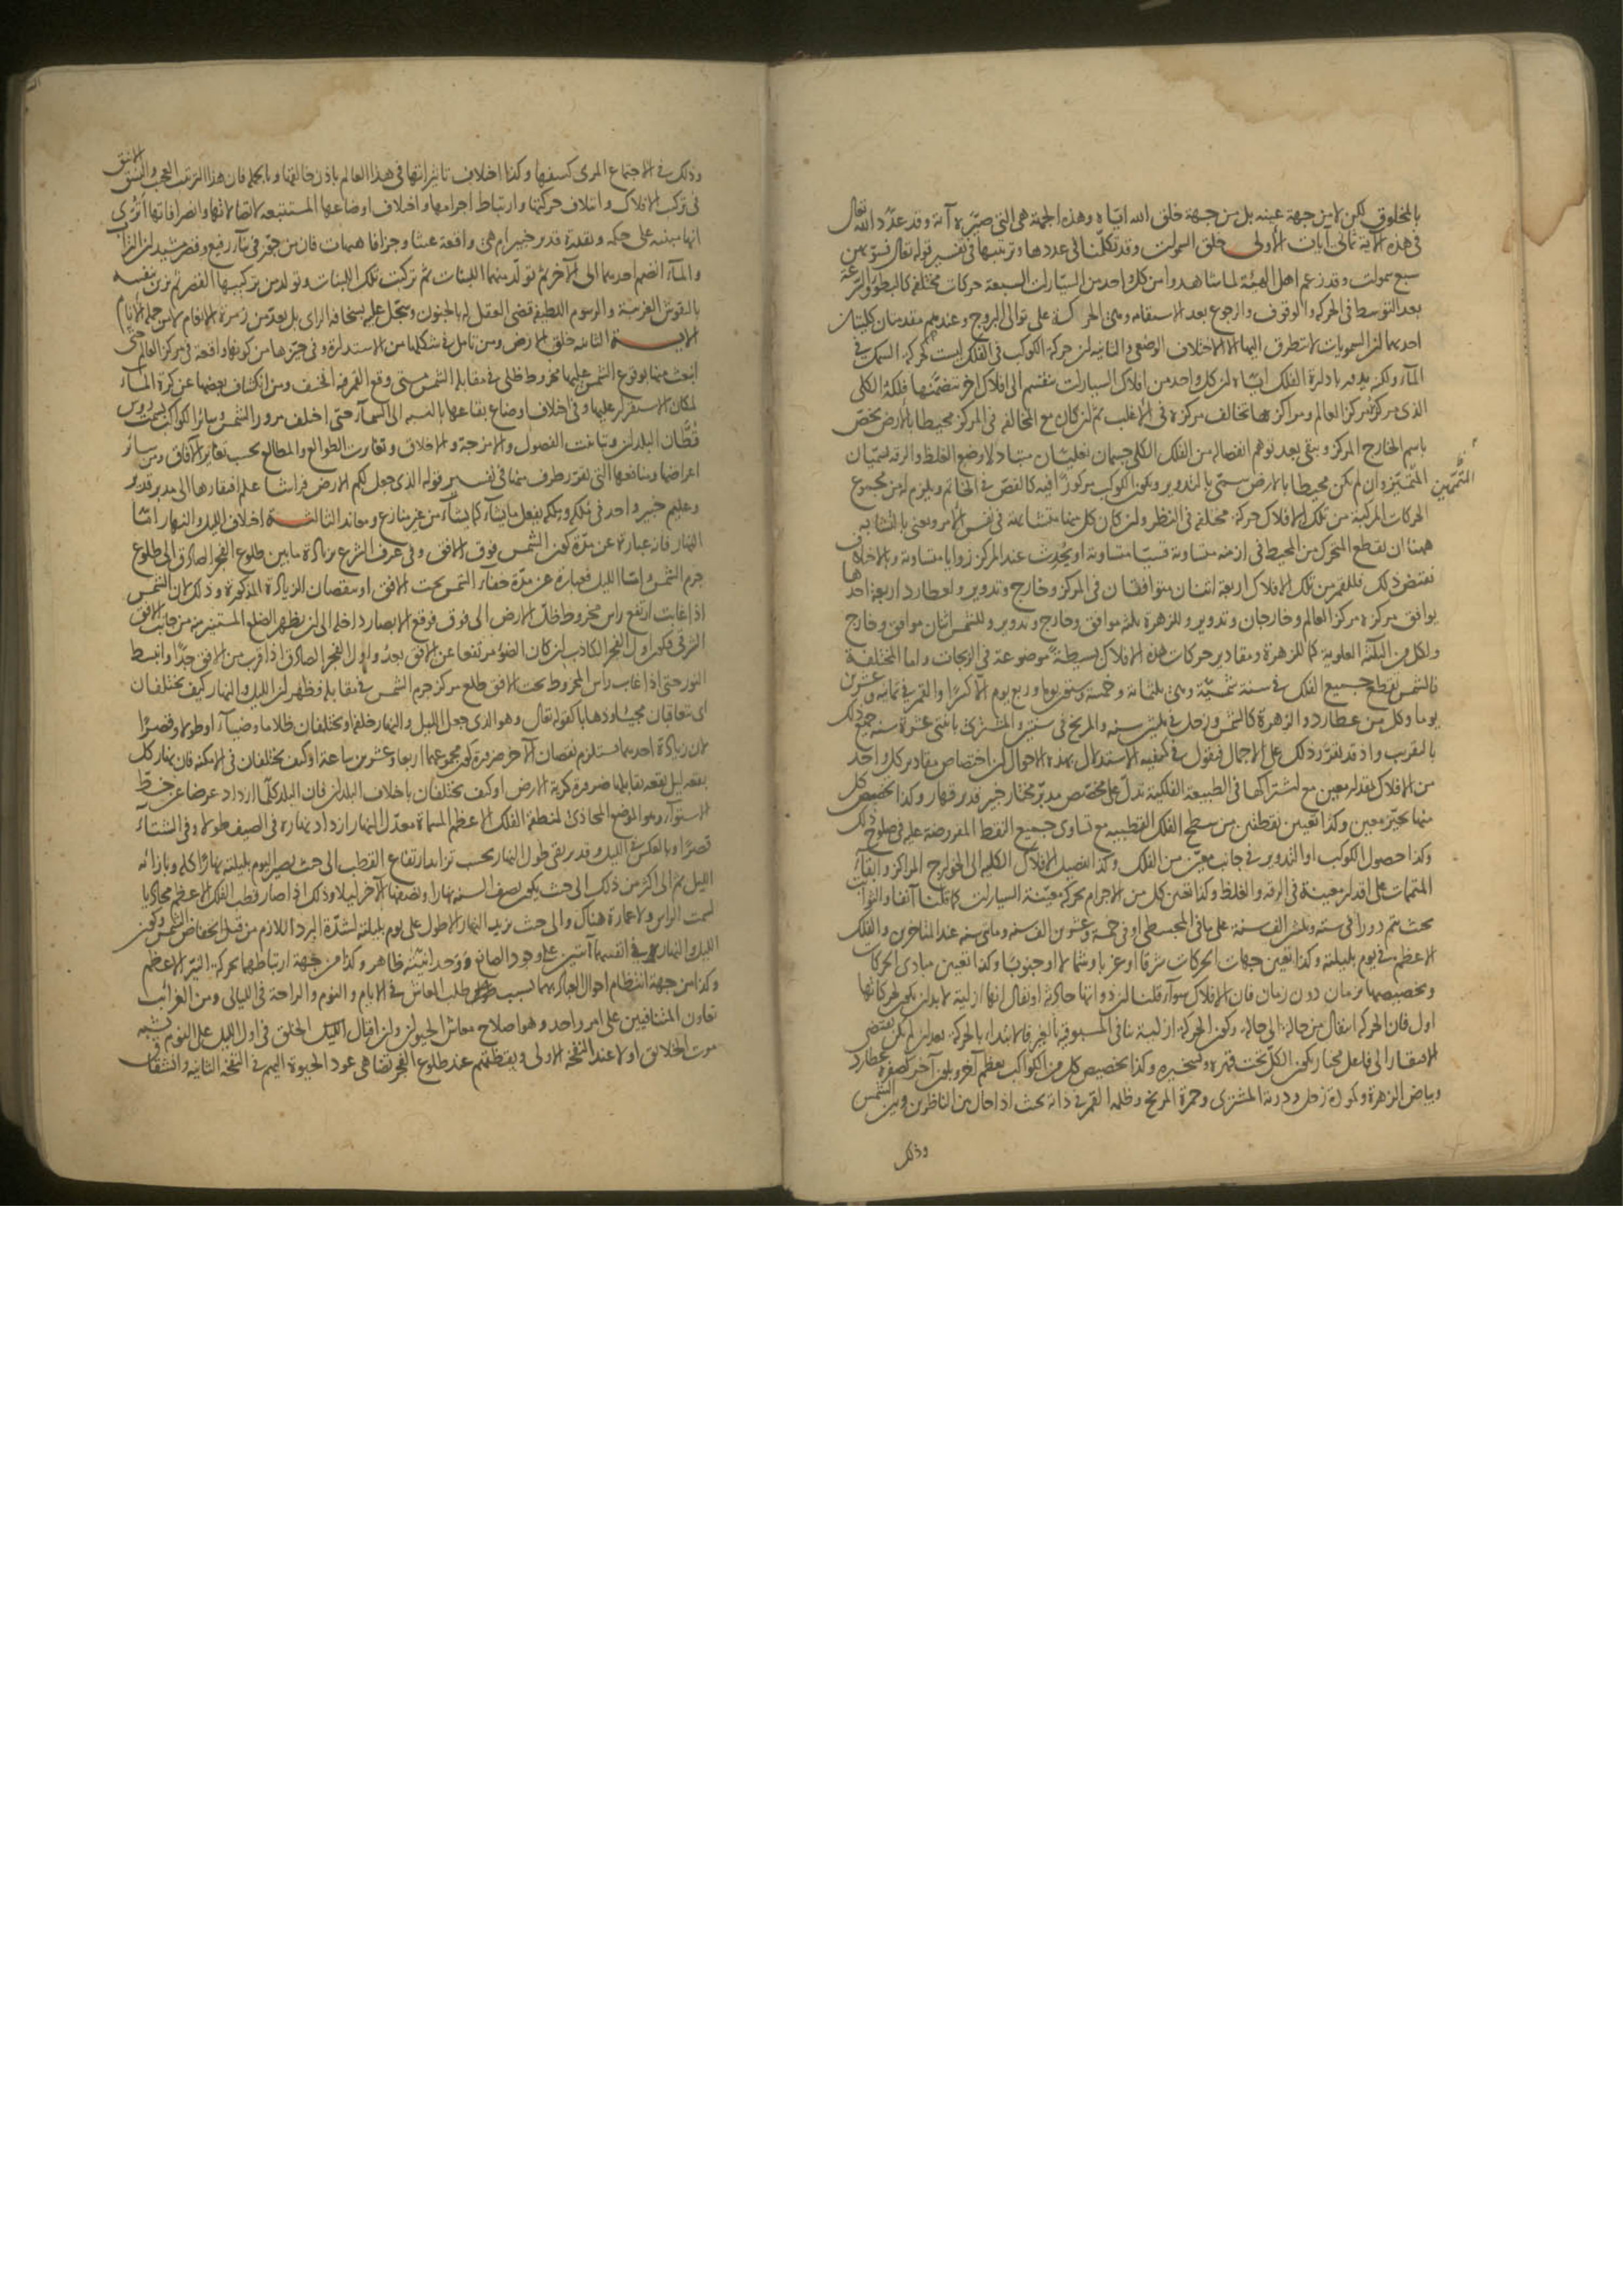 بالمخلوق لكن لا من جهة عينه بل من جهة خلق الله اياه وهذه الجهة هى التى صيرته آية وقد عدد الله تعالى
فى هذه الآية ثمانى آيات الأولى خلق السموات وقد تكلمنا فى عددها وترتيبها فى تفسير قوله تعالى فسوّيهن
سبع سموات وقد زعم اهل الهيئة لما شاهدوا من كل واحد من السيارات السبعة حركات مختلفة كالبطؤ والسرعة
بعد التوسط فى الحركة والوقوف والرجوع بعد الاستقامة وهى الحركة على توالى البروج وعندهم مقدمتان كليتان
احديهما ان السمويات لا تتطرق اليها الا الاختلاف الوضعى والثانية ان حركة الكوكب فى الفلك ليست كحركة السمك فى
المآء ولكنه يدور بادارة الفلك اياه ان كل واحد من افلاك السيارات ينقسم الى افلاك اخر تتضمنها فلكه الكلى
الذى مركزه مركز العالم ومراكزها تخالف مركزه فى الأغلب ثم ان كان مع المخالفة فى المركز محيطا بالأرض يخص
باسم الخارج المركز ويبقى بعد توهم انفصاله من الفلك الكلى جسمان تعليميان متبادلا وضع الغلظ والرقة يسميان
المتممين
المتممين وان لم يكن محيطا بالارض سمى بالتدوير ويكون الكوكب مركوزا فيه كالفص فى الخاتم ويلزم له من مجموع
الحركات المركبة من تلك الافلاك حركة مختلفة فى النظر وان كان كل منها متشابهة فى نفس الامر ونعنى بالتشابه
ههنا ان يقطع المتحرك من المحيط فى ازمنة متساوية قسيا متساوية او يحدث عند المركز زوايا متساوية وبالاختلاف
نقيض ذلك فللقمر من تلك الافلاك اربعة اثنان متوافقان فى المركز وخارج وتدوير ولعطارد اربعة احدها
يوافق مركزه مركز العالم وخارجان وتدوير وللزهرة ثلثة موافق وخارج وتدوير وللشمس اثنان موافق وخارج
ولكل من الثلثة العلوية كما للزهرة ومقادير حركات هذه الافلاك بسيطة موضوعة فى الزيجات واما المختلفة
فالشمس تقطع جميع الفلك فى سنة شمسية وهى ثلثمائة وخمسة وستون يوما وربع يوم الا كسرا والقمر فى ثمانية وعشرين
يوما وكل من عطارد والزهرة كالشمس وزحل فى ثلثين سنة والمريخ فى سنتين والمشترى باثنتى عشرة سنة جميع ذلك
بالتقريب واذ قد تقرر ذلك على الاجمال فنقول فى كيفية الاستدلال بهذه الاحوال ان اختصاص مقادير كل واحد
من الافلاك بقدر معين مع اشتراكها فى الطبيعة الفلكية تدل على مخصص مدبر مختار خبير قدير قهار وكذا تخصيص كل
منها بحيز معين وكذا تعيين نقطتين من سطح الفلك القطبية مع تساوى جميع النقط المفروضة عليه فى صلوح ذلك
وكذا حصول الكوكب او التدوير فى جانب معين من الفلك وكذا تفصيل الافلاك الكلية الى الخوارج المراكز وابقاء
المتممات على اقدار معينة فى الرقة والغلظ وكذا تعين كل من الاجرام بحركة معينة السيارات كما قلنا آنفا والثوابت
بحيث يتم دورا فى ستة وثلثين الف سنة على ما فى المجسطى او فى خمسة وعشرين الف سنة ومائتى سنة عند المتأخرين والفلك
الاعظم فى يوم بليلته وكذا تعين جهات الحركات شرقا او غربا وشمالا او جنوبا وكذا تعيين مبادى الحركات
وتخصيصها بزمان دون زمان فان الافلاك سوآء قلنا ان ذواتها حادثة او نقال انها ازلية لا بد ان يكون لحركاتها
اول فان الحركة انتقال من حالة الى حالة وكون الحركة ازلية ينافى المسبوقية بالغير فالابتداء بالحركة بعد ان لم يكن يقتضى
الافتقار الى فاعل مختار يكون الكل تحت قهره وتسخيره وكذا تخصيص كل من الكواكب بعظم آخر وبلون آخر كصفرة عطارد
وبياض الزهرة وكمودة زحل ودرية المشترى وحمرة المريخ وظلمة القمر فى ذاته بحيث اذا حال بين الناظرين وبين الشمس
وذلك
وذلك فى الاجتماع المرئى كسفها وكذا اختلاف تاثيراتها فى هذا العالم باذن خالقها وبالجملة فان هذا الترتيب العجيب والنسق الانيق
فى تركب الافلاك وائتلاف حركتها وارتباط اجرامها واختلاف اوضاعها المستتبعة لاتصالاتها وانصرافاتها أترى
انها مبنية على حكمة وبقدرة قدير خبير ام هى واقعة عبثا وجزافا هيهات فان من جوّز فى بنآء رفيع وقصر مشيد ان التراب
والمآء انضم احدهما الى الآخر ثم تولد منهما اللبنات ثم تركبت تلك اللبنات وتولد من تركيبها القصر ثم تزين بنفسه
بالنقوش الغريبة والرسوم اللطيفة قضى العقل له بالجنون وسجل عليه بسخافة الراى بل بعد من زمرة الانعام لا من جملة الانام
الآيـــة الثانية خلق الارض ومن تامل فى شكلها من الاستدارة وفى حيزها من كونها واقعة فى مركز العالم حتى
انبعث منها بوقوع الشمس عليها مخروط ظلى فى مقابلة الشمس متى وقع القمر فيه انخسف ومن انكشاف بعضها عن كرة المآء
لمكان الاستقرار عليها وفى اختلاف اوضاع بقاعها بالنسبة الى السمآء حتى اختلف مرور الشمس وسائر الكواكب بسمت رؤس
قطان البلدان وتباينت الفصول والامزجة والاخلاق وتفاوت الطوالع والمطالع بحسب تغاير الآفاق ومن سائر
اعراضها ومنافعها التى تقرر طرف منها فى تفسير قوله الذى جعل لكم الارض فراشا علم افتقارها الى مدبر قدير
وعليم خبير واحد فى ملكه وملكه يفعل ما يشآء كما يشآء من غير منازع ومعاند الثالثـــة اختلاف الليل والنهار امّا
النهار فانه عبارة عن مدة كون الشمس فوق الافق وفى عرف الشرع بزيادة ما بين طلوع الفجر الصادق الى طلوع
جرم الشمس وامّا الليل فعبارة عن مدة خفآء الشمس تحت الافق او بنقصان الزيادة المذكورة وذلك لان الشمس
اذا غابت ارتفع راس مخروط ظل الارض الى فوق فوقع الابصار داخله الى ان يظهر الضلع المستنير منه من جانب الافق
الشرقى فيكون اول الفجر الكاذب ان كان الضوء مرتفعا عن الافق بعد واول الفجر الصادق اذا قرب من الافق جدّا وانبسط
النور حتى اذا غاب رأس المخروط تحت الافق طلع مركز جرم الشمس فى مقابله فظهر ان الليل والنهار كيف يختلفان
اى يتعاقبان مجيئا وذهابا كقوله تعالى وهو الذى جعل الليل والنهار خلفة او يختلفان ظلاما وضيآء او طولا وقصرًا
لان زيادة احديهما مستلزم نقصان الآخر ضرورة كون مجموعهما اربعا وعشرين ساعة او كيف يختلفان فى الامكنة فان نهار كل
بقعة ليل بقعة تقابلها ضرورة كرية الارض او كيف يختلفان باختلاف البلدان فان البلد كلما ازداد عرضا عن خط
الاستوآء وهو الموضع المحاذى لمنطقة الفلك الاعظم المسماة معدل النهار ازداد نهاره فى الصيف طولا وفى الشتآء
قصرًا وبالعكس فى الليل وقد يرتقى طول النهار بحسب تزايد ارتفاع القطب الى حيث يصير اليوم بليلته نهارًا كله وبازائه
الليل ثم الى اكثر من ذلك الى حيث يكون نصف السنة نهارا ونصفها الآخر ليلا وذلك اذا صار قطب الفلك الاعظم محاذيا
لسمت الراس ولا عمارة هناك والى حيث يزيد النهار الاطول على يوم بليلته لشدّة البرد اللازم من قبل انخفاض الشمس وكون
الليل والنهار فى انفسهما آيتين على وجود الصانع ووحدانيته ظاهر وكذا من جهة ارتباطهما بحركة النيّر الاعظم
وكذا من جهة انتظام احوال العباد بهما بسبب طلب المعاش فى الايام والنوم والراحة فى الليالى ومن الغرائب
تعاون المتنافيين على امر واحد وهو اصلاح معاش الحيوان وان اقبال الخلق فى اول الليل على النوم يشبه
موت الخلائق اولا عند النفخة الاولى ويقظتهم عند طلوع الفجر تضاهى عود الحيوة اليهم فى النفخة الثانية وانشقاق